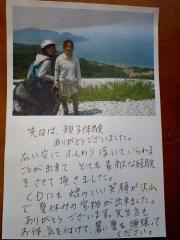 先日は、親子体験
ありがとうございました。
広い空にふんわり浮いていられる
ことが出来て とても素敵な経験
をさせて頂きました。
CDにも娘のいい笑顔が沢山
で夏休みの宝物が出来ました。
ありがとうございます。先生方も
お体、気を付けて 暑い夏を頑張って
ください。